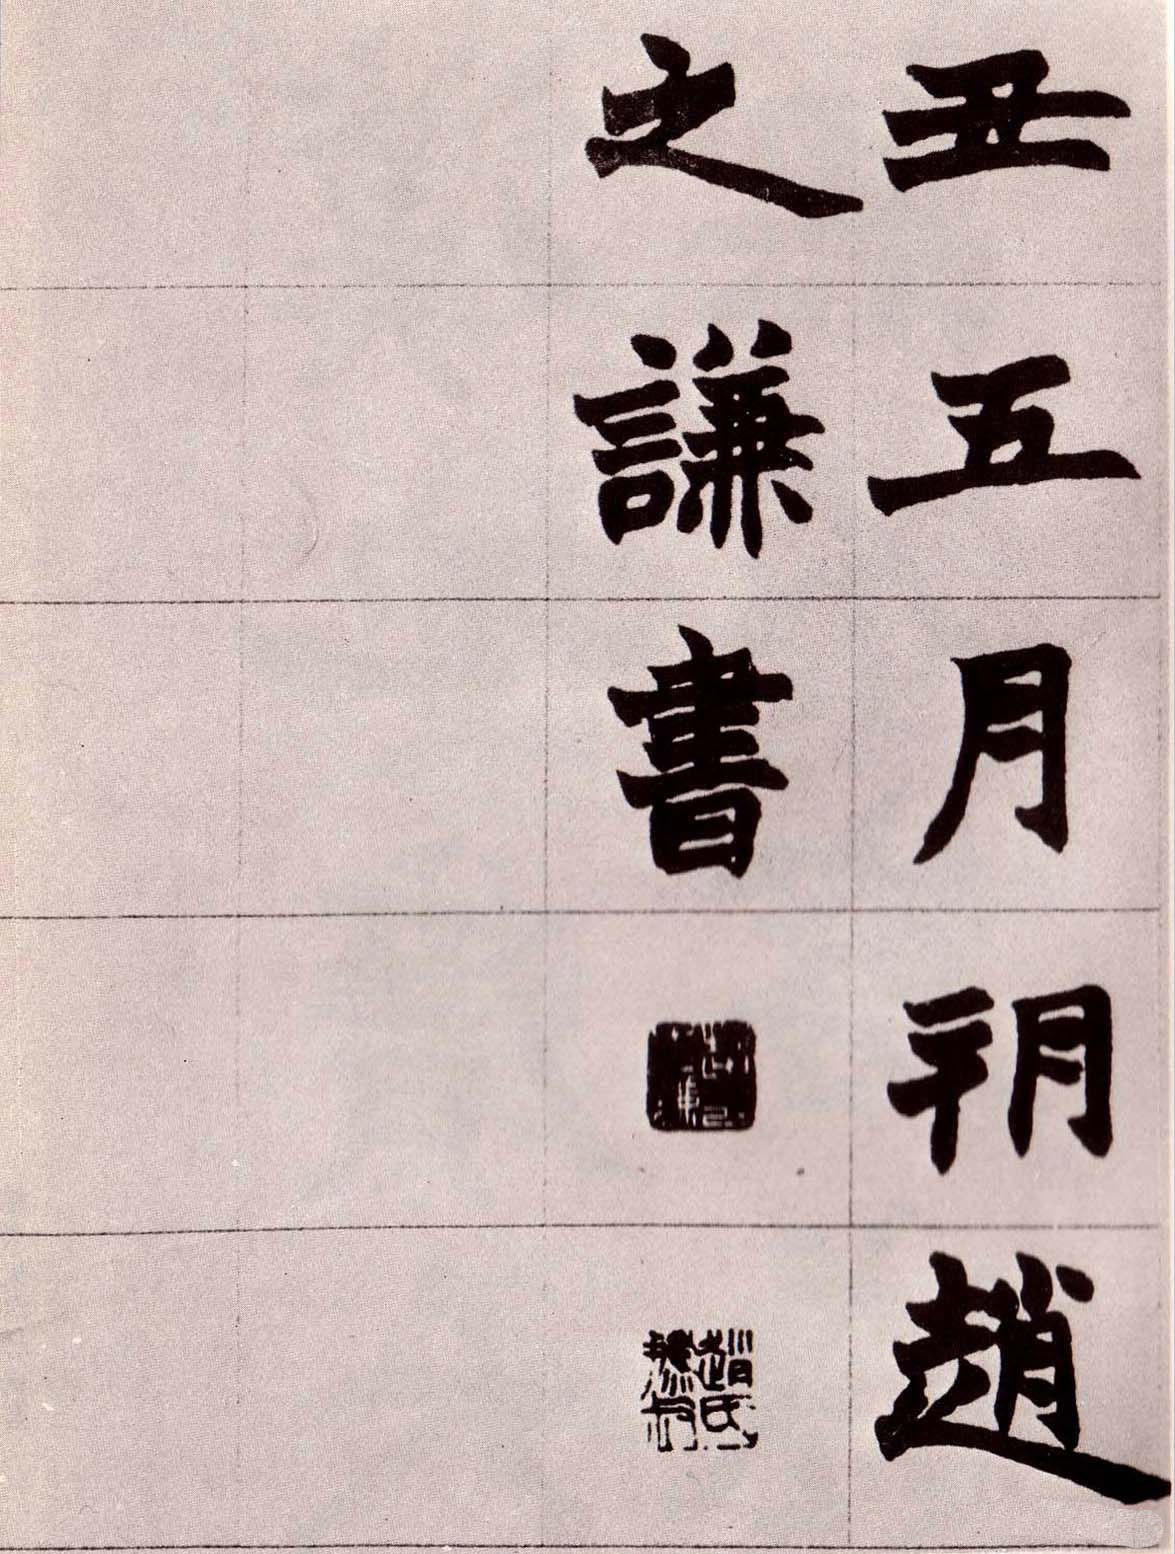 丑五月朔趙
之謙書
趙氏